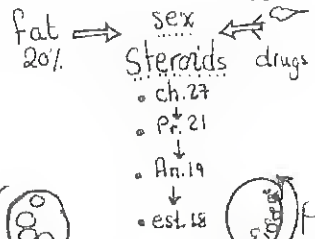 fat
20%
sex
Steroids
drugs
• ch.27
• Pr.21
• An.19
• est.18